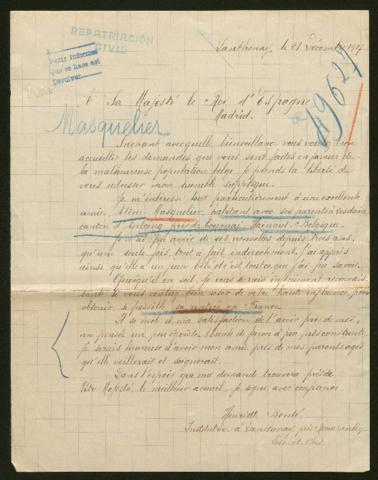 REPATRIACIÓN
CIVIL
Pedir informes
que se hace así
Devolver
Santhenay, le 21 Décembre 1917
A Sa Majesté le Roi d'Espagne
Madrid.
Masquelier
Sachant avec quelle bienveillance vous voulez bien
accueillir les demandes qui vous sont faites en faveur de
la malheureuse population belge je prends la liberté de
vous adresser mon humble supplique.
Je m'intéresse tout particulièrement à une excellente
amie, Masquelier, habitant avec ses parents à
canton d'Antoing près de Tournai, Hainaut, Belgique.
Je n'ai pu avoir de ses nouvelles depuis trois ans,
qu'une seule fois, tout à fait indirectement. J'ai appris
ainsi qu'elle a un c'est tout ce que j'ai pu savoir.
Quoiqu'il en soit, je vous serais infiniment reconnais-
sante de vouloir bien user de votre haute influence pour
obtenir, si possible, sa rentrée en France.
Il se met à ma satisfaction de l'avoir près de moi,
je serais heureuse d'avoir mon amie près de mes parents âgés
qu'elle veillerait et soignerait.
Dans l'espoir que ma demande trouvera près de
Votre Majesté le meilleur accueil, je signe avec confiance.
Henriette
Institutrice à Santhenay, par
Loir-et-Cher